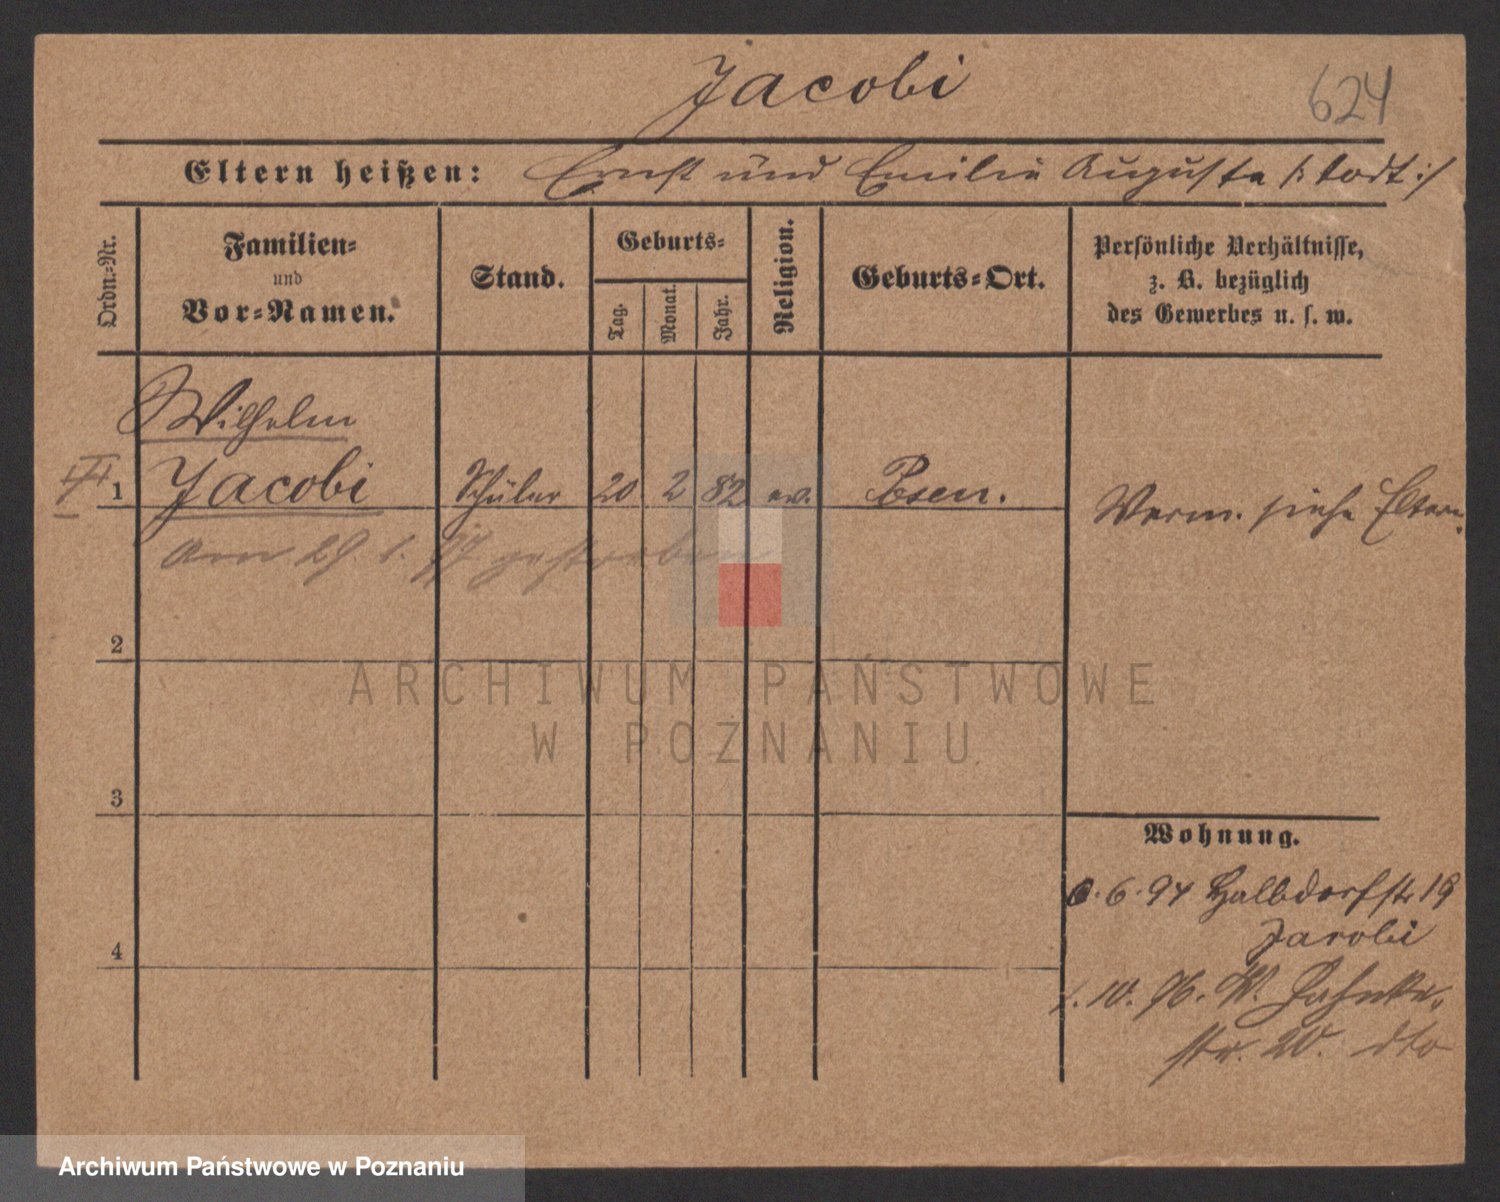 Jacobi
624
Eltern heißen: Ernst und Emilie Auguste /: todt :/
Ordn.-Nr.
Familien-
und
Vor-Namen.
Stand.
Geburts-
Tag.
Monat.
Jahr.
Religion.
Geburts-Ort.
Persönliche Verhältnisse,
z. B. bezüglich
des Gewerbes u. s. w.
Wilhelm
1 Jacobi Schüler 20 2 82 ev. Posen.
Verm. siehe Eltern.
Am 29. 1. 97 gestorben
2
3
4
Wohnung.
6. 94 Halbdorfstr 19
Jacobi
1. 10. 96. W.
str. 20. dto
ARCHIWUM PAŃSTWOWE
W POZNANIU
Archiwum Państwowe w Poznaniu